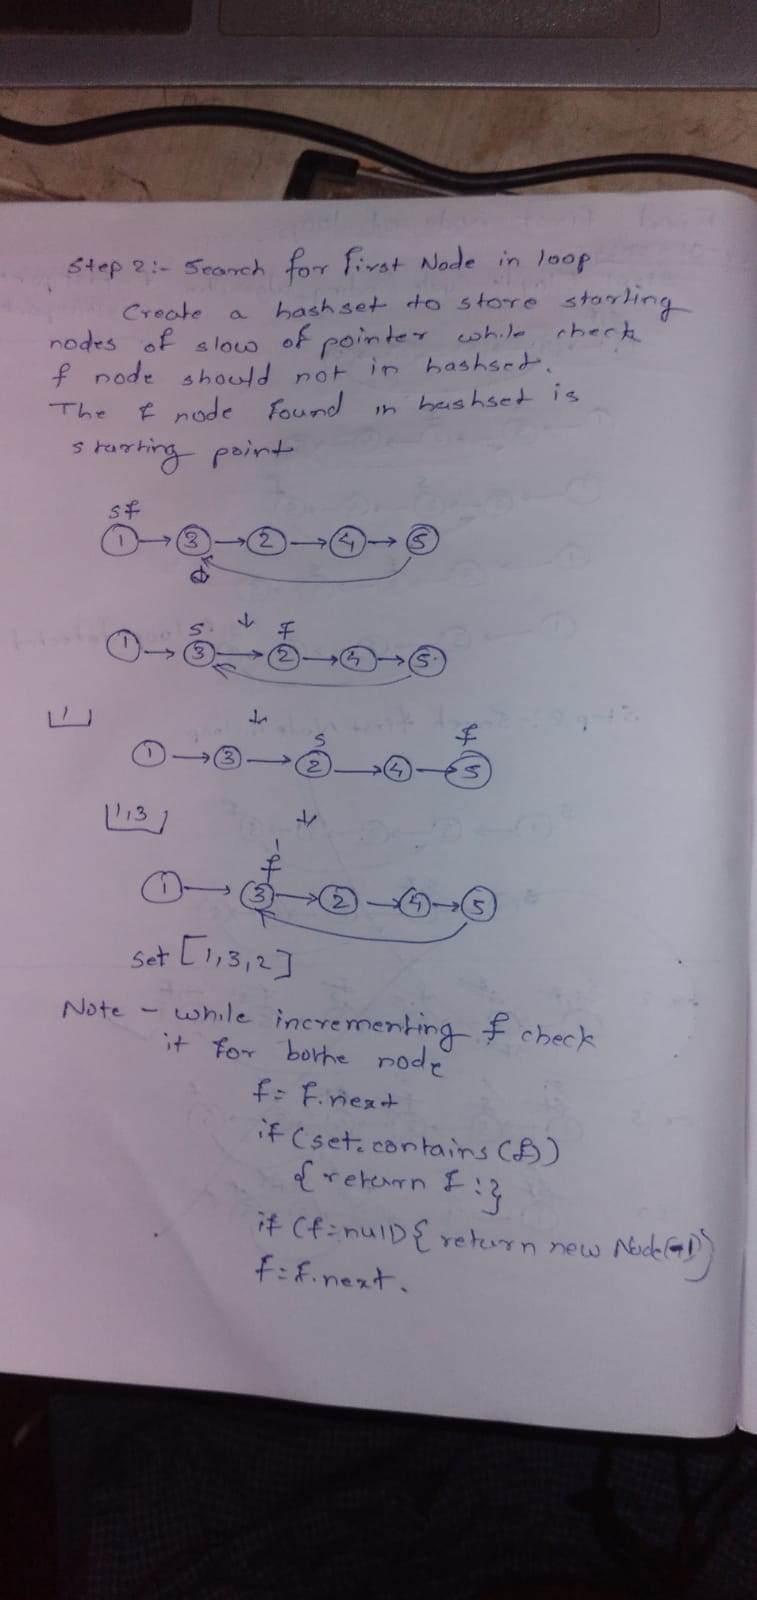 Step 2:- Search for First Node in loop
Create a hashset to store starting
nodes of slow of pointer while check
f node should not in hashset.
The f node found in hashset is
starting point
s f
1 → 3 → 2 → 4 → 5
s ↓ f
1 → 3 → 2 → 4 → 5
1
↓
s f
1 → 3 → 2 → 4 → 5
1,3
↓
f
1 → 3 → 2 → 4 → 5
set [1,3,2]
Note - while incrementing f check
it for bothe node
f = f.next
if (set.contains(f))
{ return f ; }
if (f=null) { return new Node(-1)}
f = f.next.